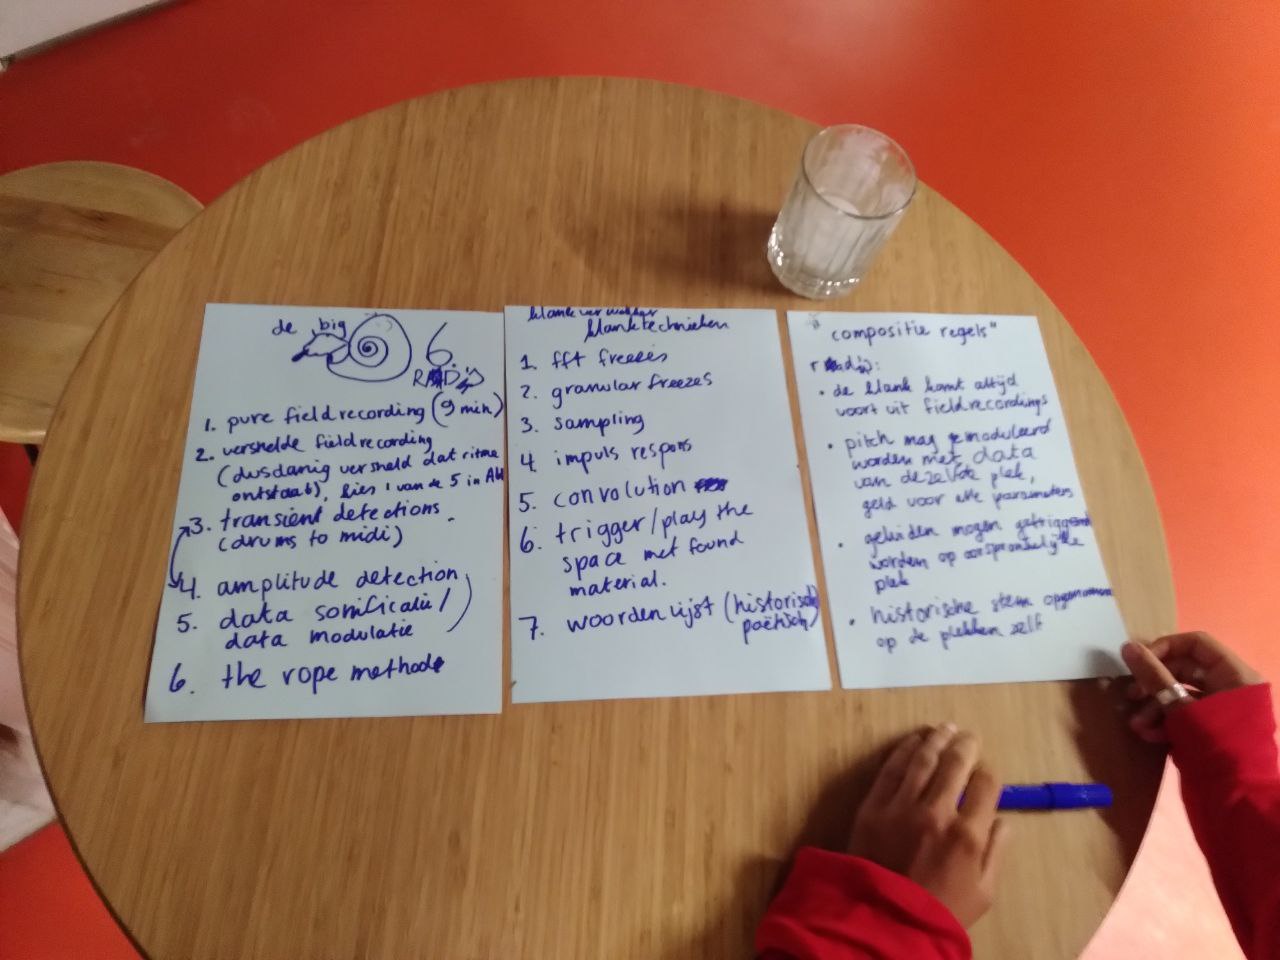 de big
6.
RADIO
1. pure fieldrecording (9 min)
2. versnelde fieldrecording
(dusdanig versneld dat ritme
ontstaat), kies 1 van de 5 in
3. transient detections
(drums to midi)
4. amplitude detection
5. data sonificatie /
data modulatie
6. the rope methode
klanktechnieken
1. fft freezes
2. granular freezes
3. sampling
4. impuls respons
5. convolution
6. trigger/play the
space met found
material.
7. woordenlijst (historisch
poëtisch)
"compositie regels"
radio:
• de klank komt altijd
voort uit fieldrecordings
• pitch mag gemoduleerd
worden met data
van dezelfde plek,
geld voor alle parameters
• geluiden mogen getriggerd
worden op oorspronkelijke
plek
• historische stem opgenomen
op de plekken zelf